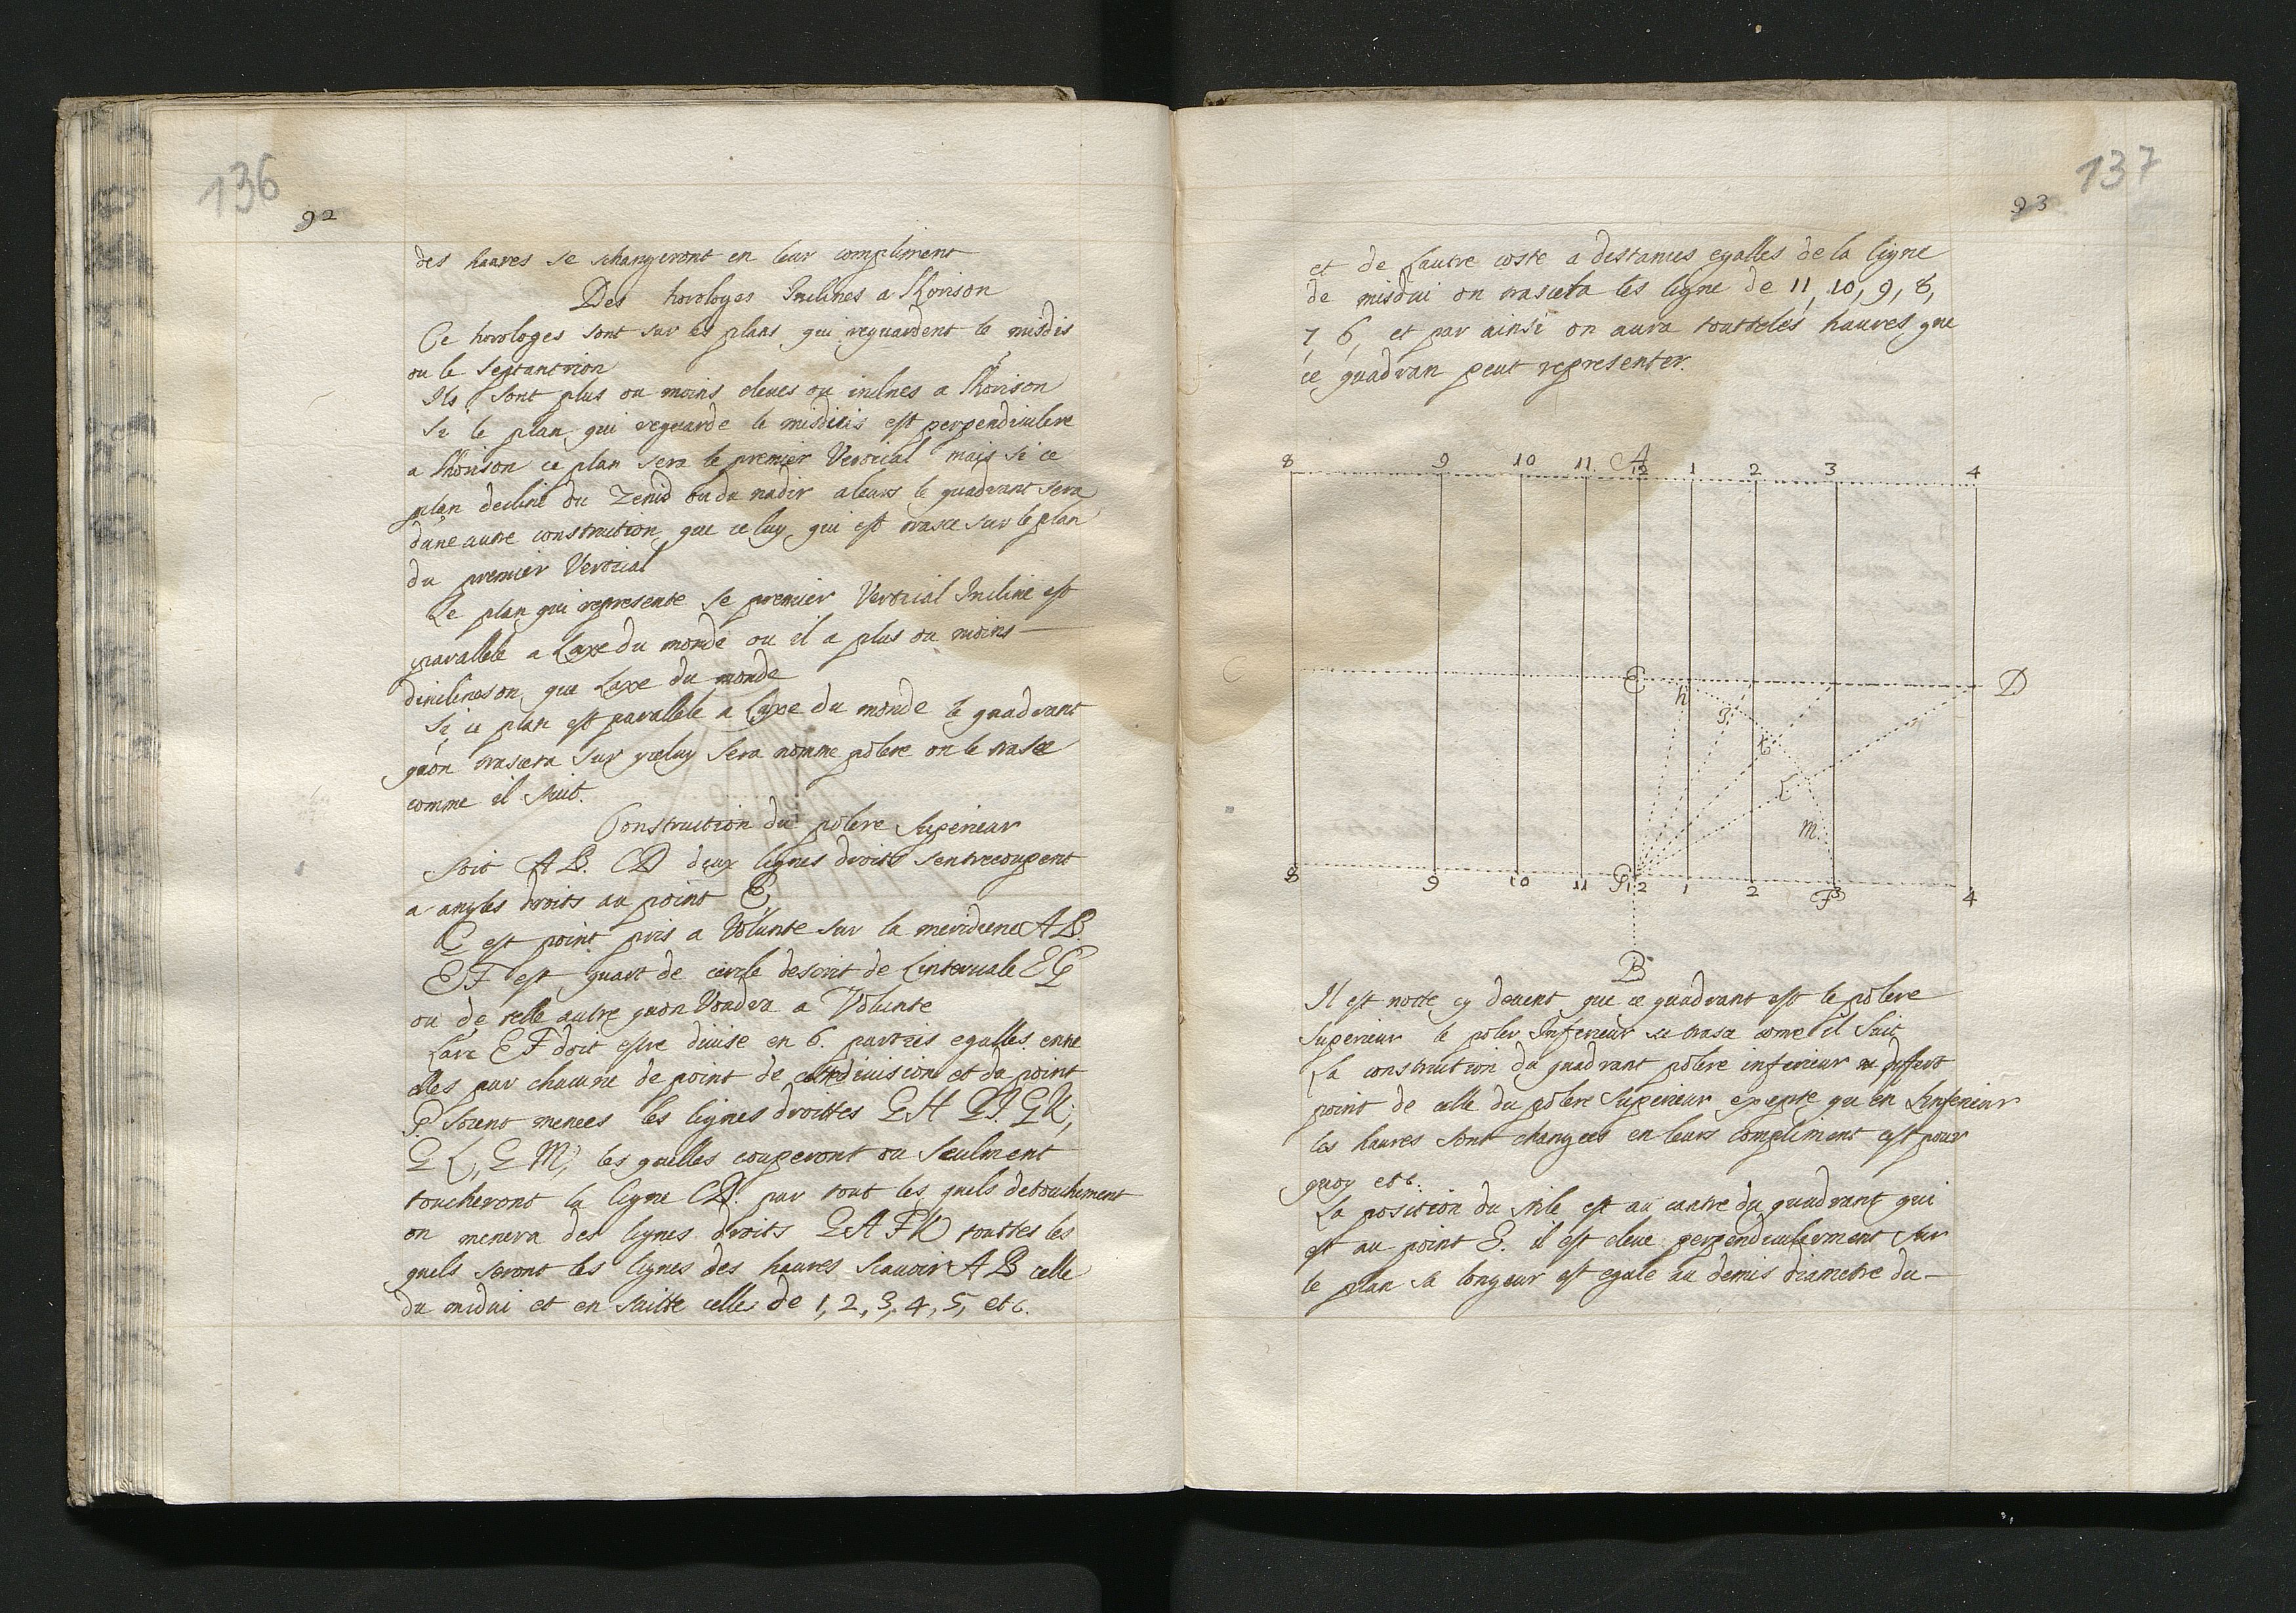 136
92
des haures se schangeront en leur compliment
Des horologes Inclines a lhorison
Ce horologes sont sur les plans qui reguardent le misdis
ou le septantrion
Ils sont plus ou moins eleues ou inclnes a lhorison
Si le plan qui reguarde le misdiis est perpendiculere
a lhorison ce plan sera le premier Vertical mais si ce
plan decline du Zenid ou du nadir aleurs le quadrant sera
dune autre construction que celuy qui est trasce sur le plan
du premier Vertical
Le plan qui represente le premier Vertical Incline est
parallele a Laxe du monde ou il a plus ou moins
dinclineson que Laxe du monde
Si ce plan est parallele a laxe du monde le quadrant
quon trascera sur yceluy sera nomme polere on le trasce
comme il suit.
Construction du polere superieur
Soit AB. CD deux lignes droits sentrecoupent
a angles droits au point E,
G est point pris a Volunte sur la meridiene AB.
EF est quart de cercle descrit de Linteruale EG
ou de telle autre quon Voudra a Volunte
Larc EF doit estre diuise en 6. parties egalles entre
elles par chacune de point de cette diuision et du point
G. soient menees les lignes droittes GH GI. GK,
GL, GM, les quelles couperont ou seulment
toucheront la ligne CD. par tout les quels detouchement
on menera des lignes droits GA FK touttes les
quels seront les lignes des haures scauoir AB celle
du midai et en suitte celles de 1, 2, 3, 4, 5, etc.
137
93
et de Lautre coste a distances egalles de la ligne
de misdai on trascera les ligne de 11, 10, 9, 8,
7, 6, et par ainsi on aura touttelés haures que
ce quadran peut representer.
8 9 10 11 A 12 1 2 3 4
C E D
h
I
K
L
M
8 9 10 11 G 12 1 2 F 3 4
B
Il est notte cy deuent que ce quadrant est le polere
superieur le poler Inferieur se trasce come il suit
La construction du quadrant polere inferieur ne differt
point de celle du polere superieur expepte qu en Linferieur
les haures sont changees en leurs compliment cest pour
quoy etc.
La position du stile est au centre du quadrant qui
est au point E. il est eleue perpendiculierment sur
le plan sa longeur est egale au demis diametre du